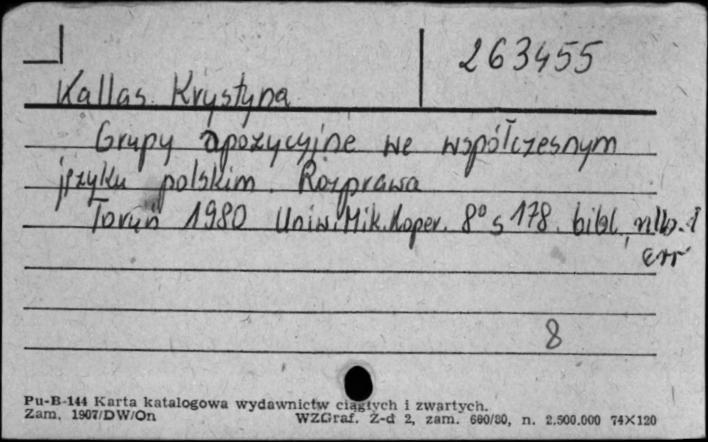 263455
Kallas Krystyna
Grupy apozycyjne we współczesnym
języku polskim. Rozprawa
Toruń 1980 Uniw. Mik. Koper. 8° s 178. bibl., nlb. 1
err
8
Pu-B-144 Karta katalogowa wydawnictw ciągłych i zwartych.
Zam. 1907/DW/On WZGraf. Z-d 2, zam. 600/80, n. 2.500.000 74×120